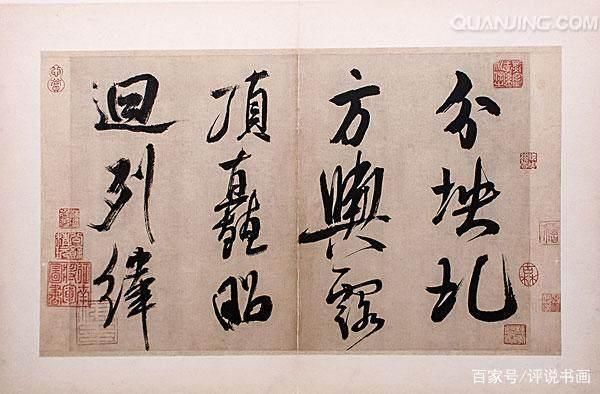 分坱圠
方輿露
頂矗昭
迴列緯
QUANJING.COM ©
百家号/评说书画